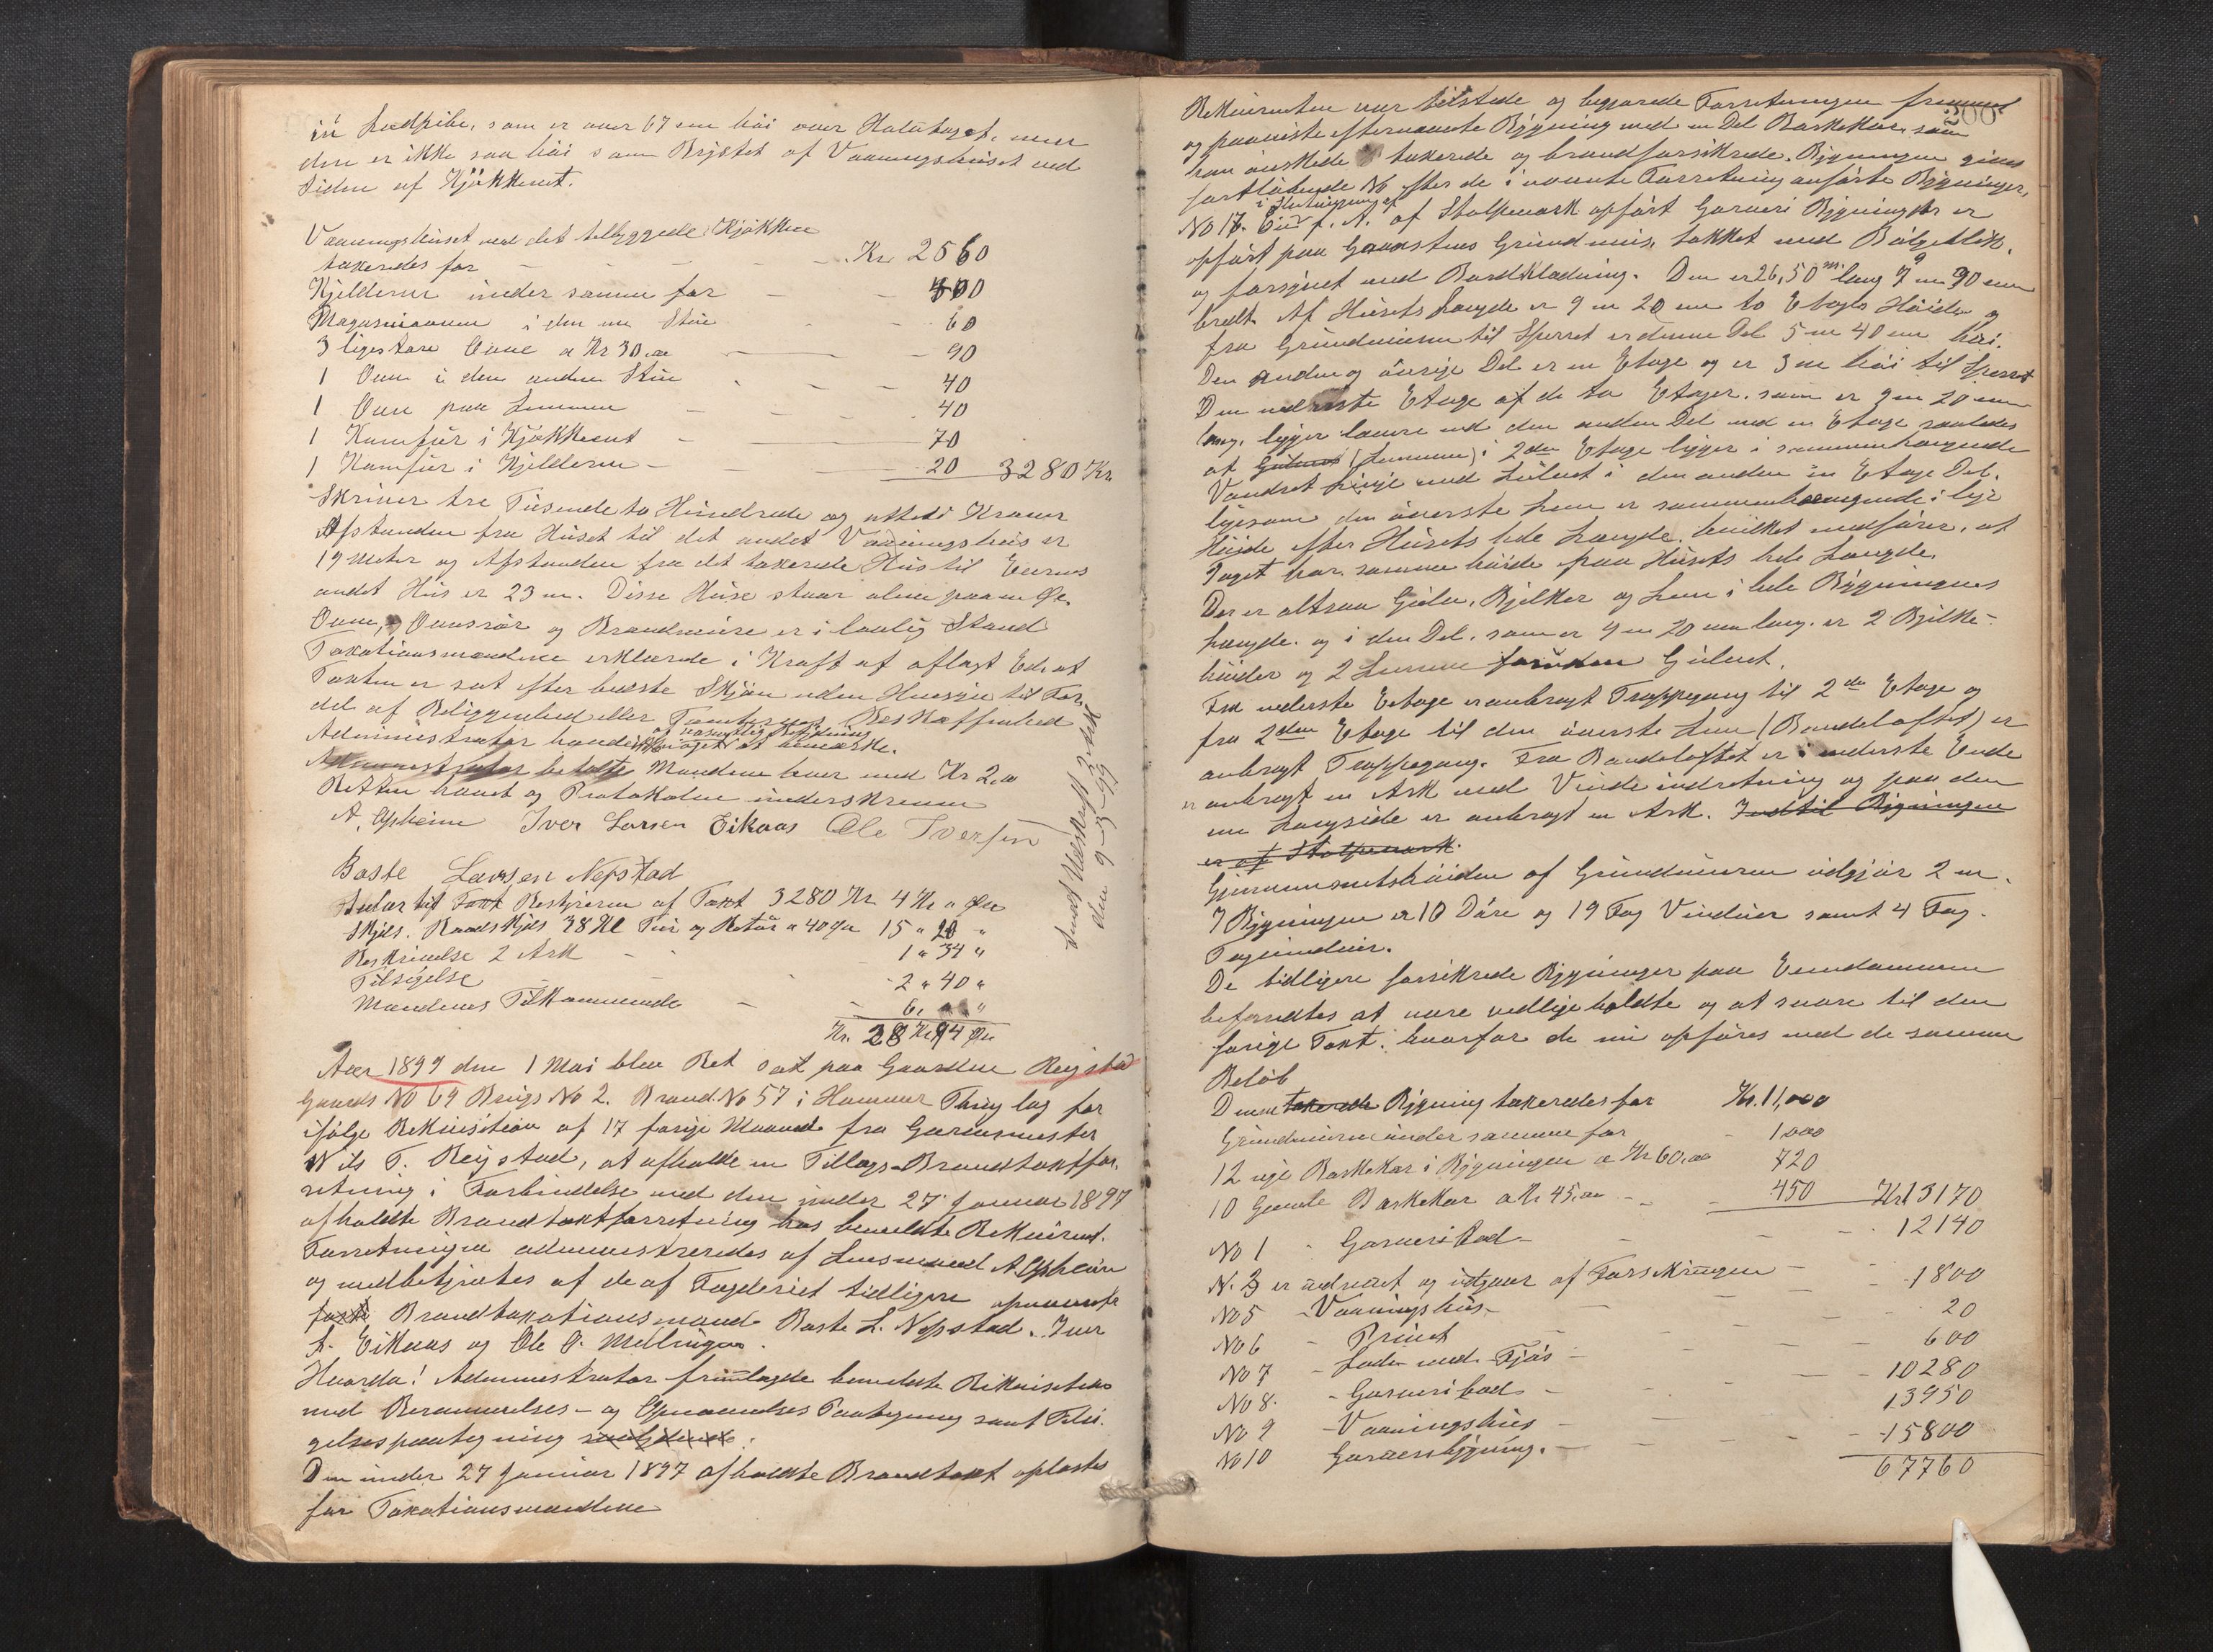 in Ludpibe, som er over 67 cm høi over Halmtaget, men
den er ikke saa høi som Brystet af Vaaningshuset ved
Siden af Kjøkkenet.
Vaaningshuset med det tilbyggede Kjøkken
taxeredes for Kr 2560
Kjelderen under samme for 400
Magasinovnen i den ene Stue 60
3 ligestore Ovne a Kr 30,00 90
1 Ovn i den anden Stue 40
1 Ovn paa Lemmen 40
1 Komfur i Kjøkkenet 70
1 Komfur i Kjelderen 20 3280 Kr
Skriver tre Tusende to Hundrede og otteti Kroner
Afstanden fra Huset til det andet Vaaningshus er
19 Meter og Afstanden fra det taxerede Hus til Eiernes
andet Hus er 23 m. Disse Huse staar alene paa en Ø.
Ovne, Ovnsrør og Brandmure er i lovlig Stand
Taxationsmændene erklærede i Kraft af aflagt Ed, at
Taxten er sat efter bedste Skjøn uden Hensyn til For-
del af Beliggenhed eller Tomternes Beskaffenhed
og
Administrator havde ikke noget at bemærke.
Administrator betalte Mændene hver med Kr 2,00
Retten hævet og Protokolen underskreven
A. Opheim Iver Larsen Eikaas Ole Iversen
Baste Larsen Nepstad
Salær til Taxt Bestyreren af Taxt 3280 Kr 4 Kr " Øre
Skyds. Baadskyds 38 Kl Tur og Retur a 40 Øre 15 " 20 "
Beskrivelse 2 Ark 1 " 34 "
Tilsigelse 2 " 40 "
Mændenes Tilkommende 6 "
Kr. 28 Kr 94 Øre
Sendt Udskrift
den 9-3-99
Aar 1899 den 1 Mai blev Ret sat paa Gaarden Reistad
Gaards No 69 Brugs No 2. Brand No 57 i Hammer Thinglag for
ifølge Rekvisition af 17 forige Maaned fra Garvermester
Nils T. Reistad, at afholde en Tillægs-Brandtaxtfor-
retning i Forbindelse med den under 27 Januar 1897
afholdte Brandtaxtforretning hos bemeldte Rekvirent.
Forretningen administreredes af Lensmand A. Opheim
og medbetjentes af de af Fogderiet tidligere opnævnte
faste Brandtaxationsmænd Baste L. Nepstad, Iver
L. Eikaas og Ole O. Mellingen.
Hvorda! Administrator fremlagde bemeldte Rikvisition
med Berammelses- og Opnævnelses Paategning samt Tilsi-
gelsespaategning
Den under 27 Januar 1897 afholdte Brandtaxt oplæstes
for Taxationsmændene
300
Rekvirenten var tilstede og begjærede Forretningen fremmet
og paaviste efternævnte Bygning med en Del Barkekar, som
han ønskede taxerede og brandforsikrede. Bygningen gives
fortløbende No efter de i nævnte Forretning anførte Bygninger.
No 17. af Stolpeværk opført Garveri Bygning der er
opført paa Graastens Grundmur, takket med Bølgeblik,
og forsynet med Bordklædning. Den er 26,50 m lang 7 m 90 cm
bredt. Af Husets Længde er 9 m 20 cm to Etages Høide og
fra Grundmuren til Sperret er denne Del 5 m 40 cm høi.
Den anden og øvrige Del er en Etage og er 3 m høi til Sperret
Den nederste Etage af de to Etager, som er 9 m 20 cm
lang, ligger lavere end den anden Del med en Etage saaledes
at Gulvet (Lemmen) i 2den Etage ligger i sammenhængende
Vandret linje med Gulvet i den anden en Etage Del.
ligesom den øverste Lem er sammenhængende i lige
Høide efter Husets hele Længde, hvilket medfører, at
Taget har samme høide paa Husets hele Længde.
Der er altsaa Gulv, Bjelker og Lem i hele Bygningens
længde, og i den Del, som er 9 m 20 cm lang, er 2 Bjelke-
høider og 2 Lemme foruden Gulvet.
Fra nederste Etage er anbragt Trappegang til 2den Etage og
fra 2den Etage til den øverste Lem (Bandeloftet) er
anbragt Trappegang. Fra Bandeloftet er i nederste Ende
er anbragt en Ark med Vindeindretning og paa den
ene Langside er anbragt en Ark. Indtil Bygningen
er af Stolpeværk.
Gjennemsnitshøiden af Grundmuren udgjør 2 m.
I Bygningen er 10 Døre og 19 Fag Vinduer samt 4 Fag
Tagvinduer.
De tidligere forsikrede Bygninger paa Eiendommen
befandtes at være vedligeholdte og at svare til den
forige Taxt, hvorfor de nu opføres med de samme
Beløb
Denne taxerede Bygning taxeredes for Kr. 11,000
Grundmuren under samme for 1000
12 nye Barkekar i Bygningen a Kr 60,00 720
10 Gamle Barkekar a Kr. 45,00 450 Kr 13170
No 1 - Garveribod 12140
N. 3 er nedrevet og udgaar af Forsikringen
No 5 - Vaaningshus 1800
No 6 - Privet 20
No 7 - Lade med Fjøs 600
No 8. - Garveribod 10280
No 9 - Vaaningshus 13950
No 10 Garveribygning. 15800
67760